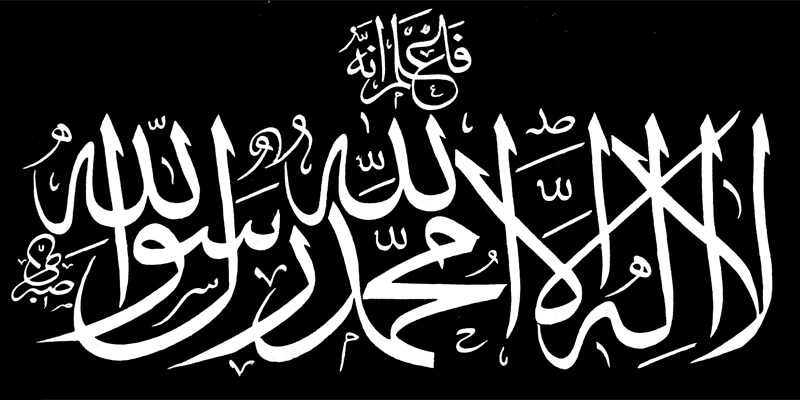 فَاعْلَمْ أَنَّهُ
لا إله إلا الله محمد رسول الله
صبري